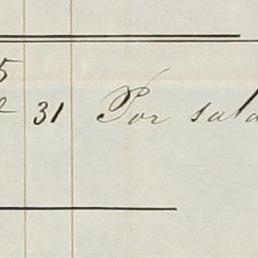 5
31 Por sala